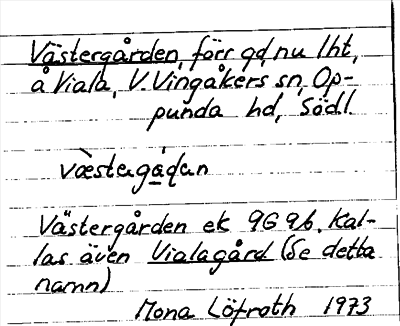 Västergården, förr gd, nu lht,
å Viala, V. Vingåkers sn, Op-
punda hd, Södl.
Västergården ek 9G 9b. Kal-
las även Vialagård (Se detta
namn)
Mona Löfroth 1973